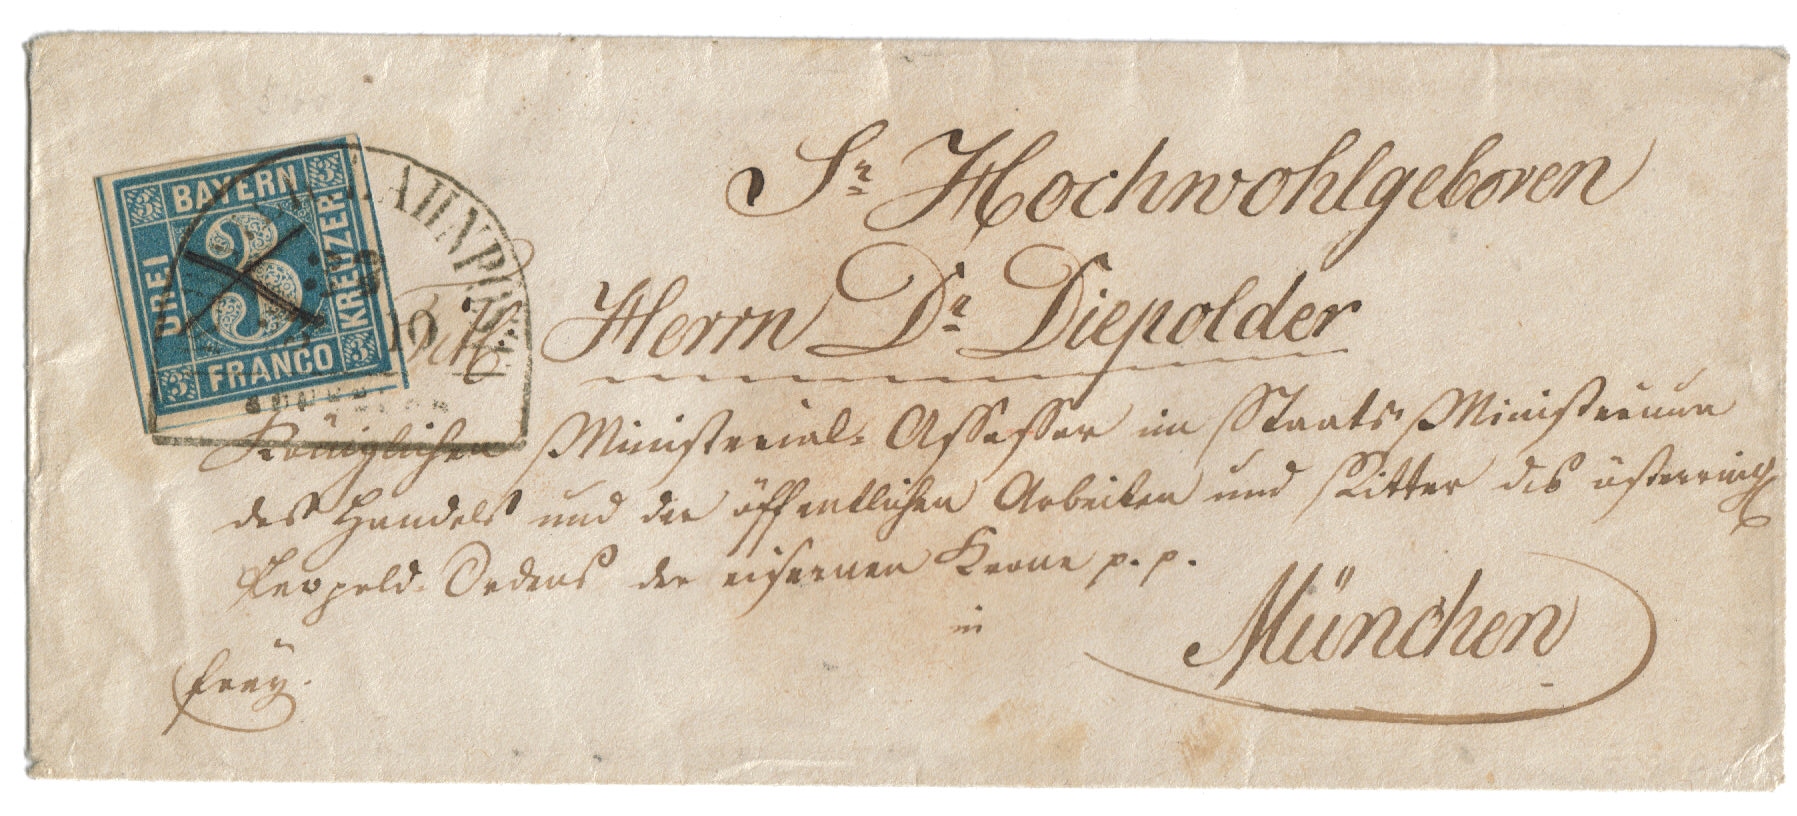 BAYERN
DREI
3
KREUZER
FRANCO
BAHNPOST
Sr Hochwohlgeboren
Herrn Dr Diepolder
Königlichen Ministerial-Assessor im Staats Ministerium
des Handels und der öffentlichen Arbeiten und Ritter des österreich
Leopold-Ordens der eisernen Krone p. p.
in
München
frey.